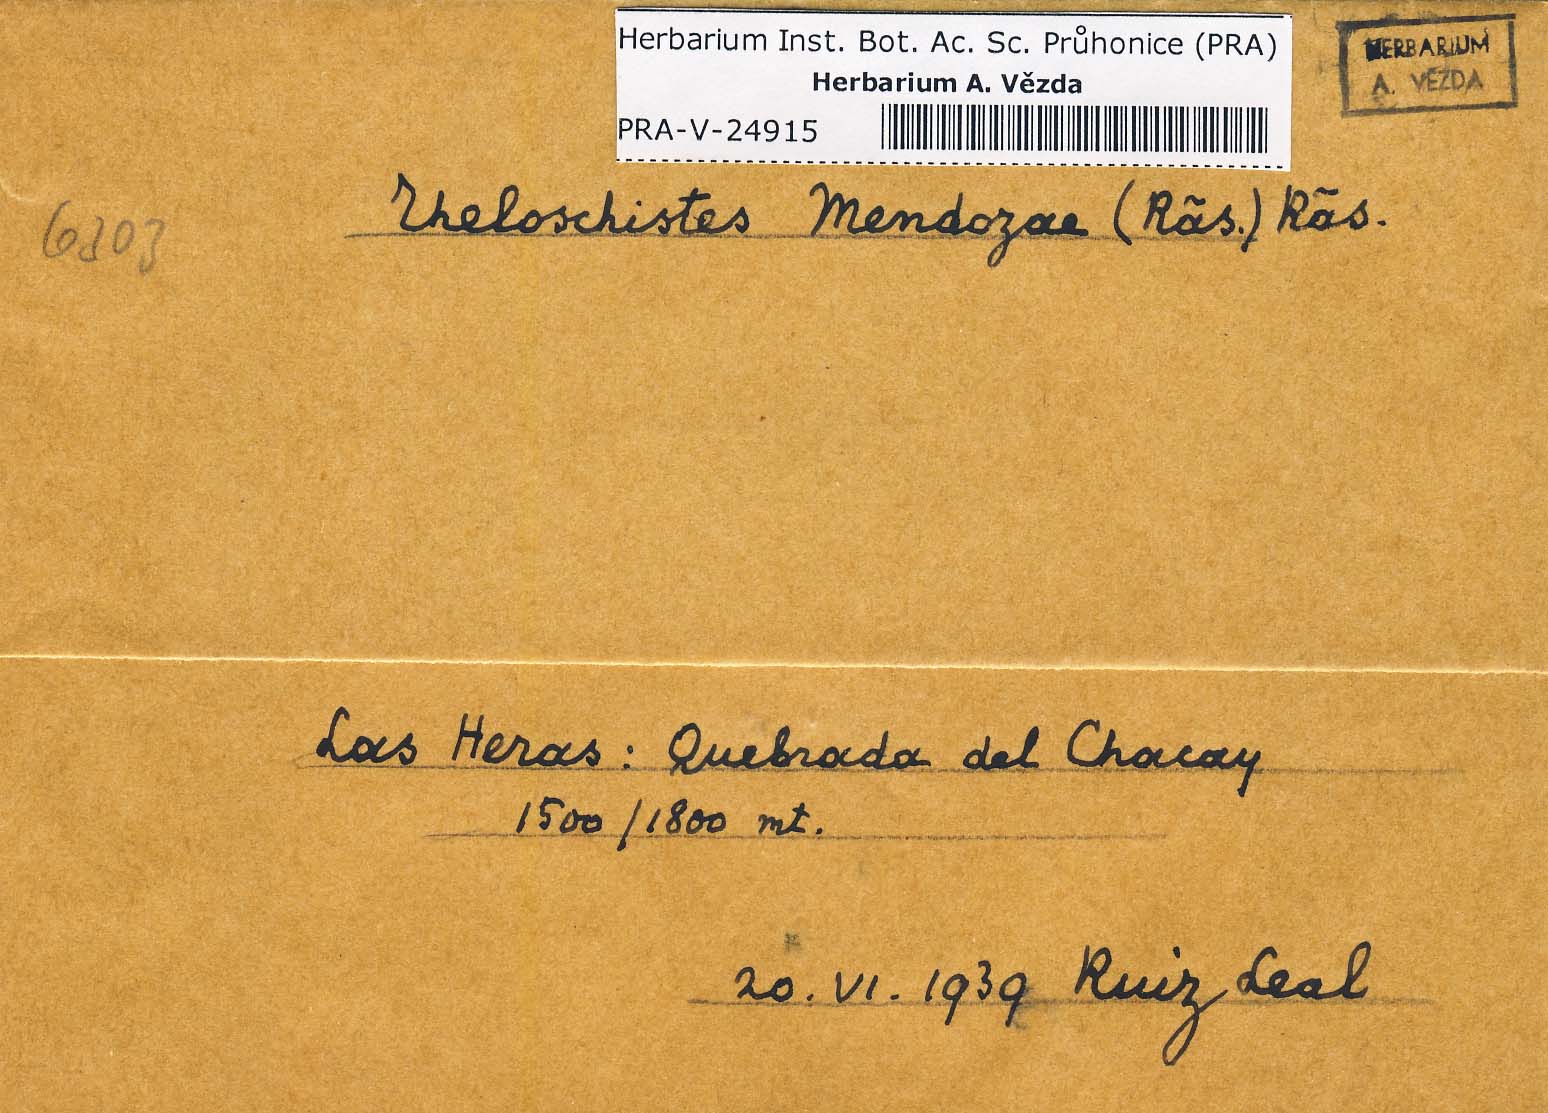 Herbarium Inst. Bot. Ac. Sc. Průhonice (PRA)
Herbarium A. Vězda
PRA-V-24915
HERBARIUM
A. VĚZDA
6303
Theloschistes Mendozae (Räs.) Räs.
Las Heras: Quebrada del Chacay
1500/1800 mt.
20. VI. 1939 Ruiz Leal